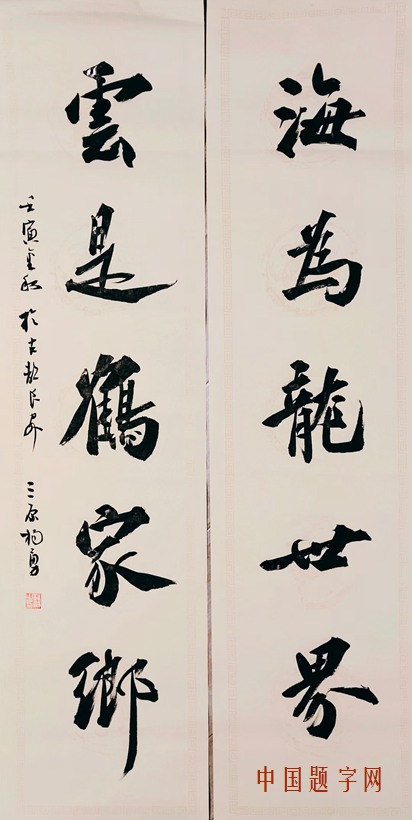 海為龍世界
雲是鶴家鄉
壬寅金秋於古都長安三原楊勇
中国题字网